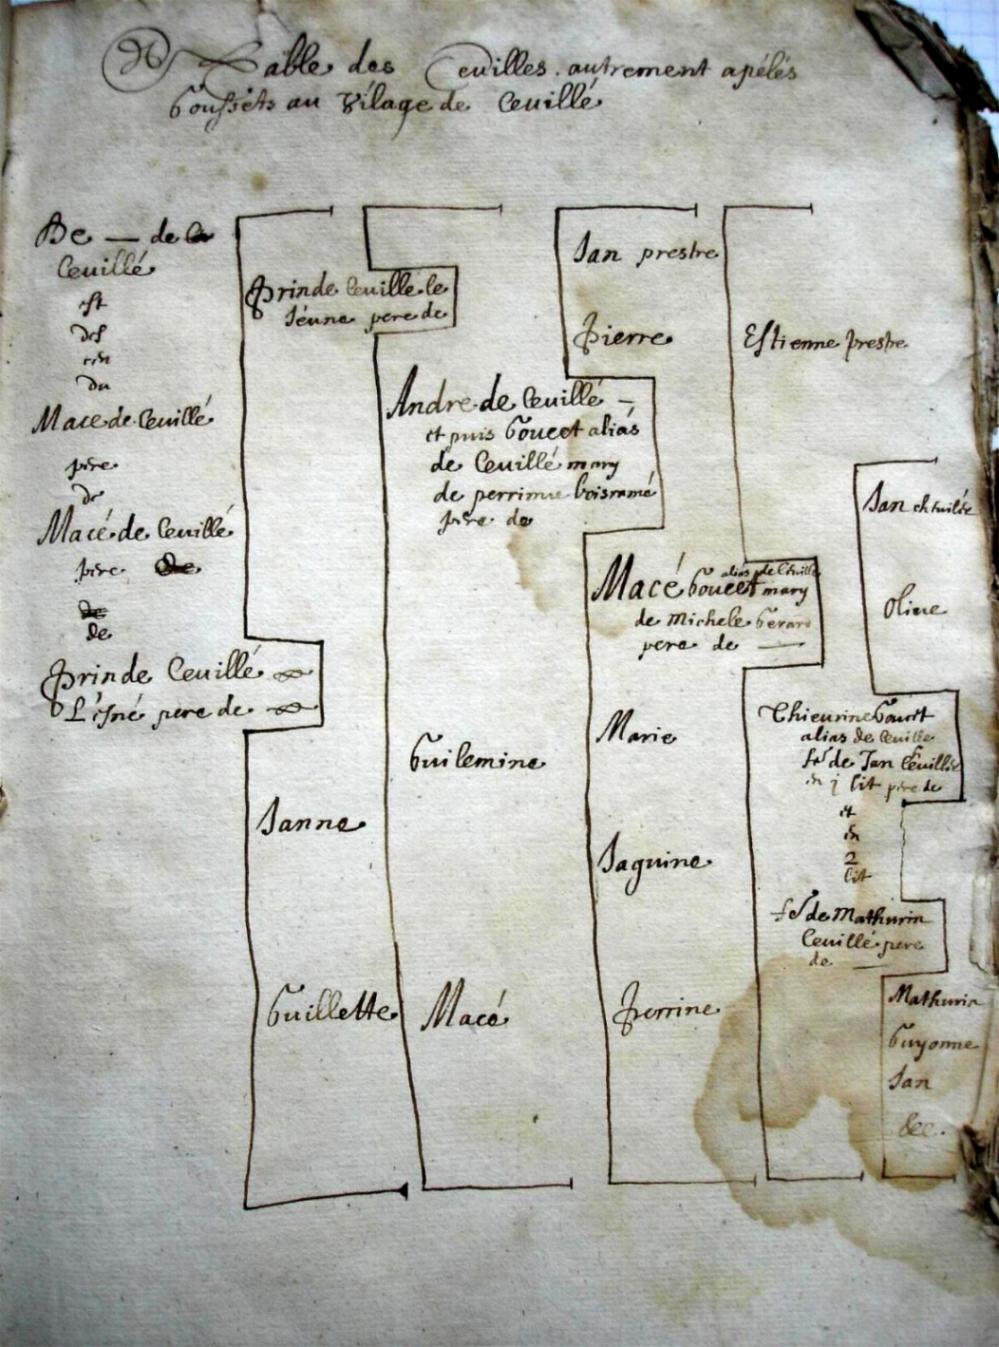 Table des Ceuilles autrement apélés
Goussets au Vilage de Ceuillé
De — de
Ceuillé
est
des
cen
du
Mace de Ceuillé
père
de
Macé de Ceuillé
père
de
Prinde Ceuillé
L'esné pere de
Prinde Ceuillé le
Jéune pere de
Janne
Guillette
Andre de Ceuillé —
et puis Gouest aliás
de Ceuillé mary
de perrinne boisramé
père de
Guilemine
Macé
Jan prestre
Pierre
Macé Gouest alias de Ceuille mary
de Michele Gerard
pere de —
Marie
Jaquine
Perrine
Estienne prestre
Thieurine Gouest
alias de Ceuille
fe de Jan Ceuillé
en j lit père de
et
en
2
lit
fe de Mathurin
Ceuillé pere
de —
Jan
Olive
Mathurin
Guyonne
Jan
&c.